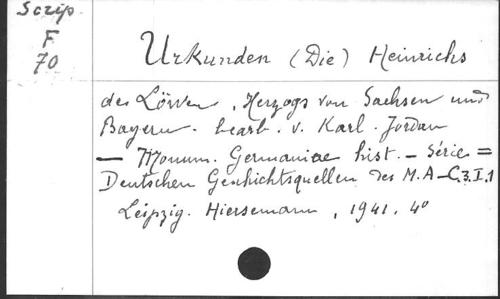 Scrip
F
70
Urkunden (Die) Heinrichs
des Löwen, Herzogs von Sachsen und
Bayern. bearb. v. Karl. Jordan
— Monum. Germaniae hist. — Série =
Deutschen Geschichtsquellen des M.A - C.3.I.1
Leipzig. Hiersemann, 1941. 4°